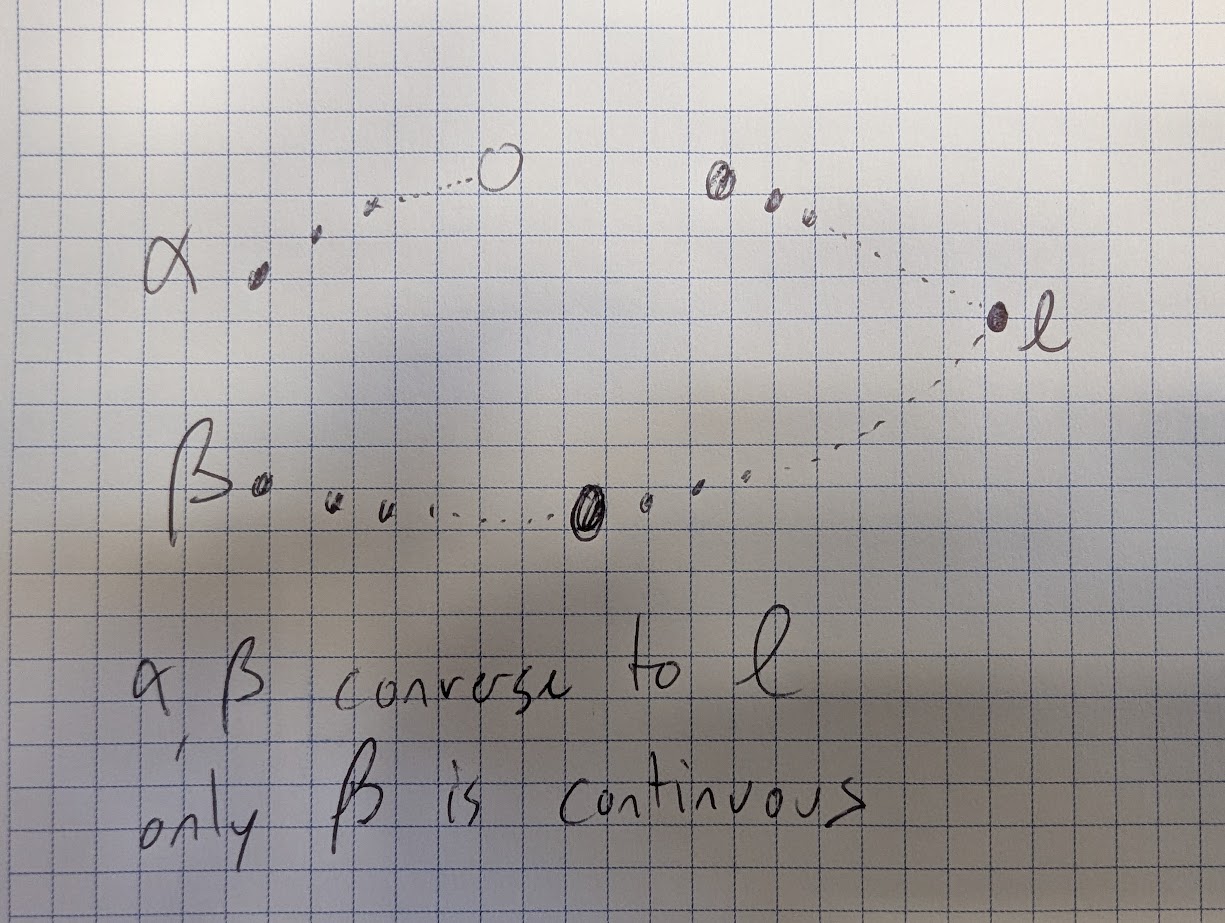 α
ℓ
β
α, β converge to ℓ
only β is continuous